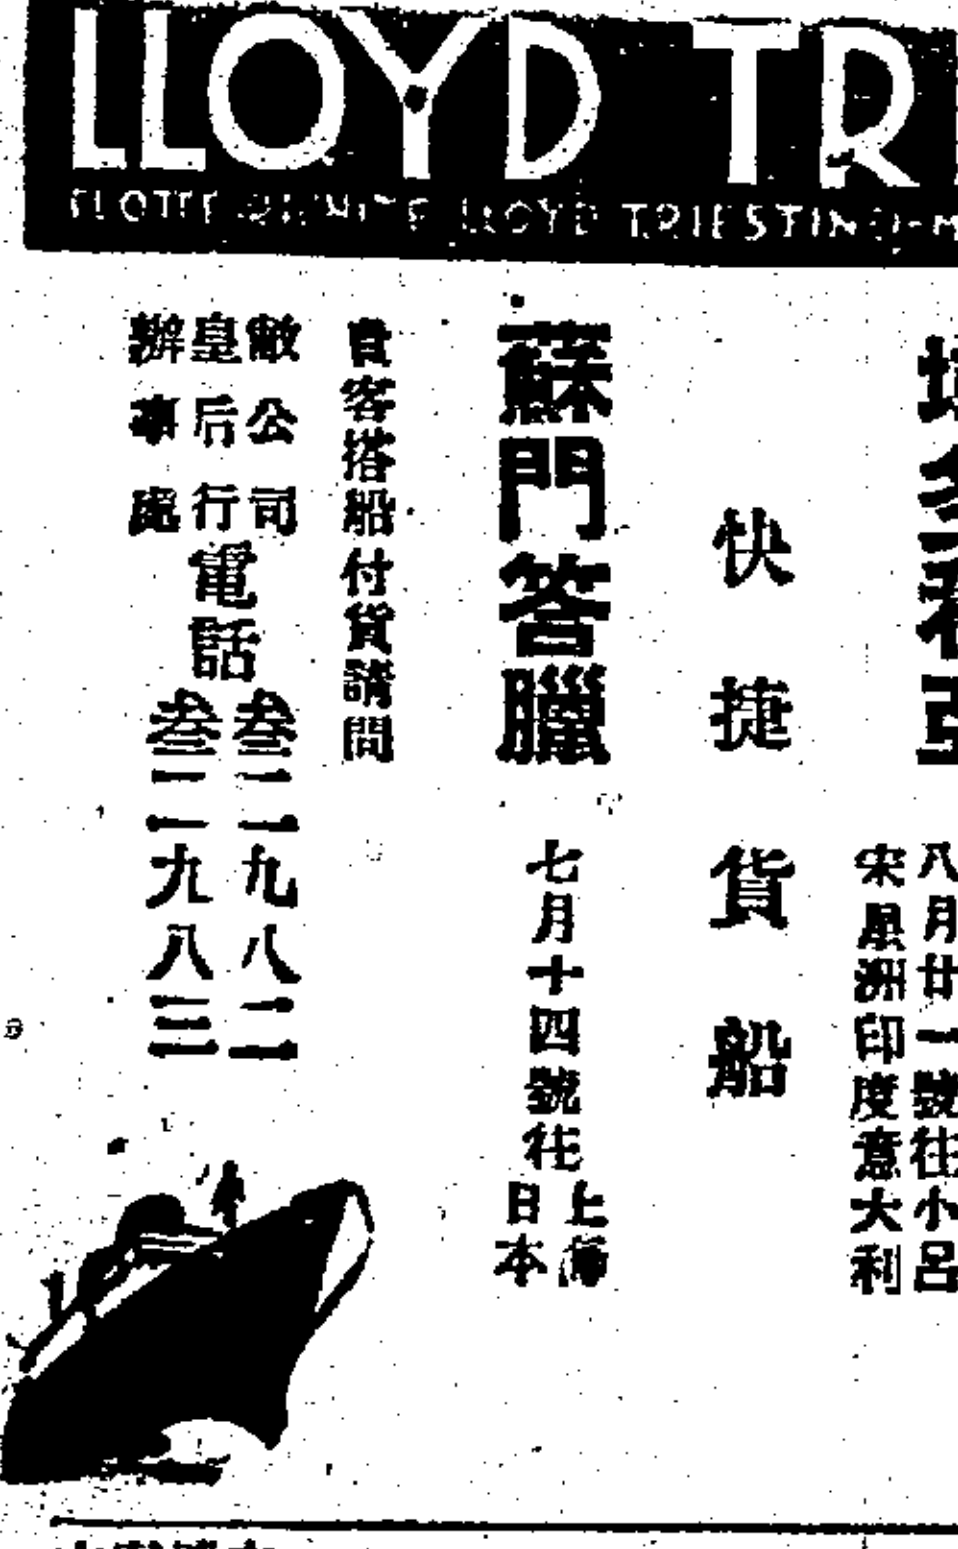 LLOYD TR
LLOYD TRIESTINO-M
八月廿一號往小呂
宋 洲印度意大利
快捷貨船
蘇門答臘
七月十四號往
上海
日本
貴客搭船付貨請問
敝公司
皇后行
辦事處
電話
叁二一九八二
叁二一九八三